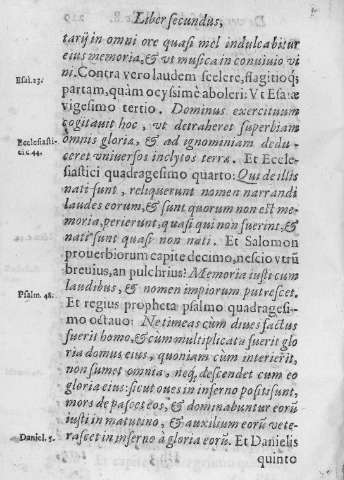 Liber secundus,
tarij in omni ore quasi mel indulcabitur
eius memoria, & vt musica in conuiuio vi
ni. Contra vero laudem scelere, flagitioq;
Esai.23.
partam, quàm ocyssimè aboleri: Vt Esaiæ
vigesimo tertio. Dominus exercituum
cogitauit hoc, vt detraheret superbiam
Ecclesiasti-
ci c.44.
omnis gloria, & ad ignominiam dedu-
ceret vniuersos inclytos terræ. Et Eccle-
siastici quadragesimo quarto: Qui de illis
nati sunt, reliquerunt nomen narrandi
laudes eorum, & sunt quorum non est me-
moria, perierunt, quasi qui non fuerint, &
nati sunt quasi non nati. Et Salomon
prouerbiorum capite decimo, nescio vtrũ
breuius, an pulchrius? Memoria iusti cum
laudibus, & nomen impiorum putrescet.
Psalm. 48.
Et regius propheta psalmo quadragesi-
mo octauo: Ne timeas cum diues factus
fuerit homo, & cùm multiplicata fuerit glo
ria domus eius, quoniam cùm interierit,
non sumet omnia, neq; descendet cum eo
gloria eius: sicut oues in inferno positi sunt,
mors depascet eos, & dominabuntur eorũ
iusti in matutino, & auxilium eorũ vete-
Daniel. 5.
rascet in inferno à gloria eorũ. Et Danielis
quinto